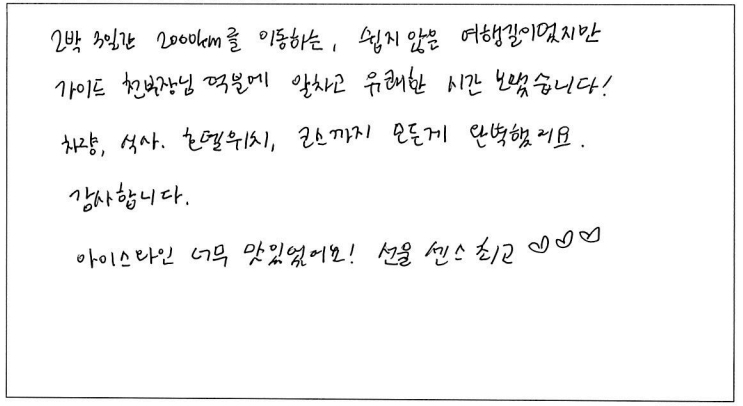 2박 3일간 2000km를 이동하는, 쉽지 않은 여행길이었지만
가이드 천부장님 덕분에 알차고 유쾌한 시간 보냈습니다!
차량, 식사. 호텔위치, 코스까지 모든게 완벽했어요.
감사합니다.
아이스와인 너무 맛있었어요! 선물 센스 최고 ♡♡♡